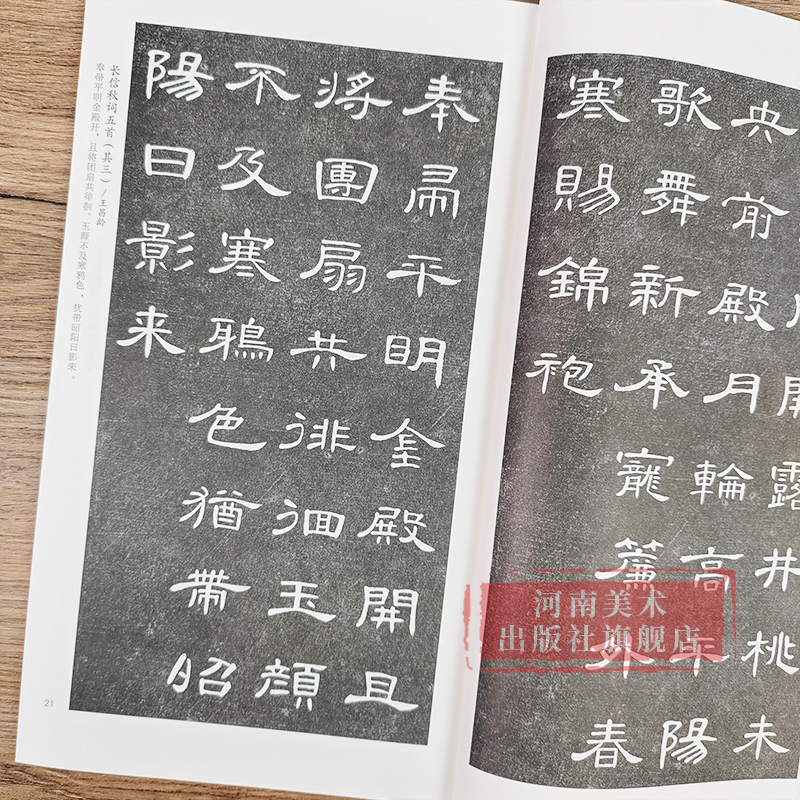 開露井桃未
央前殿月輪高平陽
歌舞新承寵簾外春
寒賜錦袍
奉帚平明金殿開且
將團扇共徘徊玉顏
不及寒鴉色猶帶昭
陽日影来
长信秋词五首（其三）/王昌龄
奉帚平明金殿开，且将团扇共徘徊。玉颜不及寒鸦色，犹带昭阳日影来。
21
河南美术
出版社旗舰店